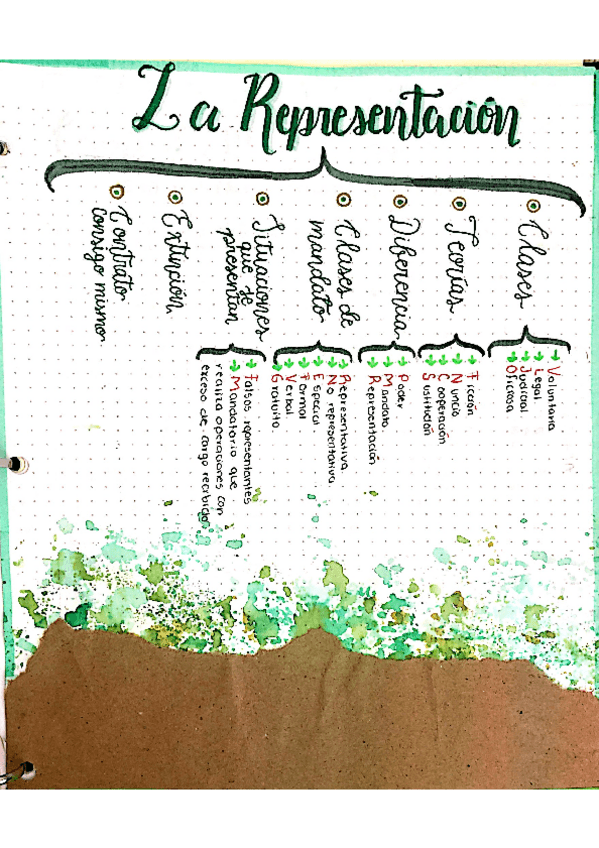 La Representación
Clases
Voluntaria
Legal
Judicial
Oficiosa
Teorías
Ficción
Nuncio
Cooperación
Sustitución
Diferencia
Poder
Mandato
Representación
Clases de
mandato
Representativa
No representativa
Especial
Formal
Verbal
Gratuito
Situaciones
que se
presentan
Falsos representantes
Mandatario que
realiza operaciones con
exceso de cargo recibido
Extinción
Contrato
consigo mismo